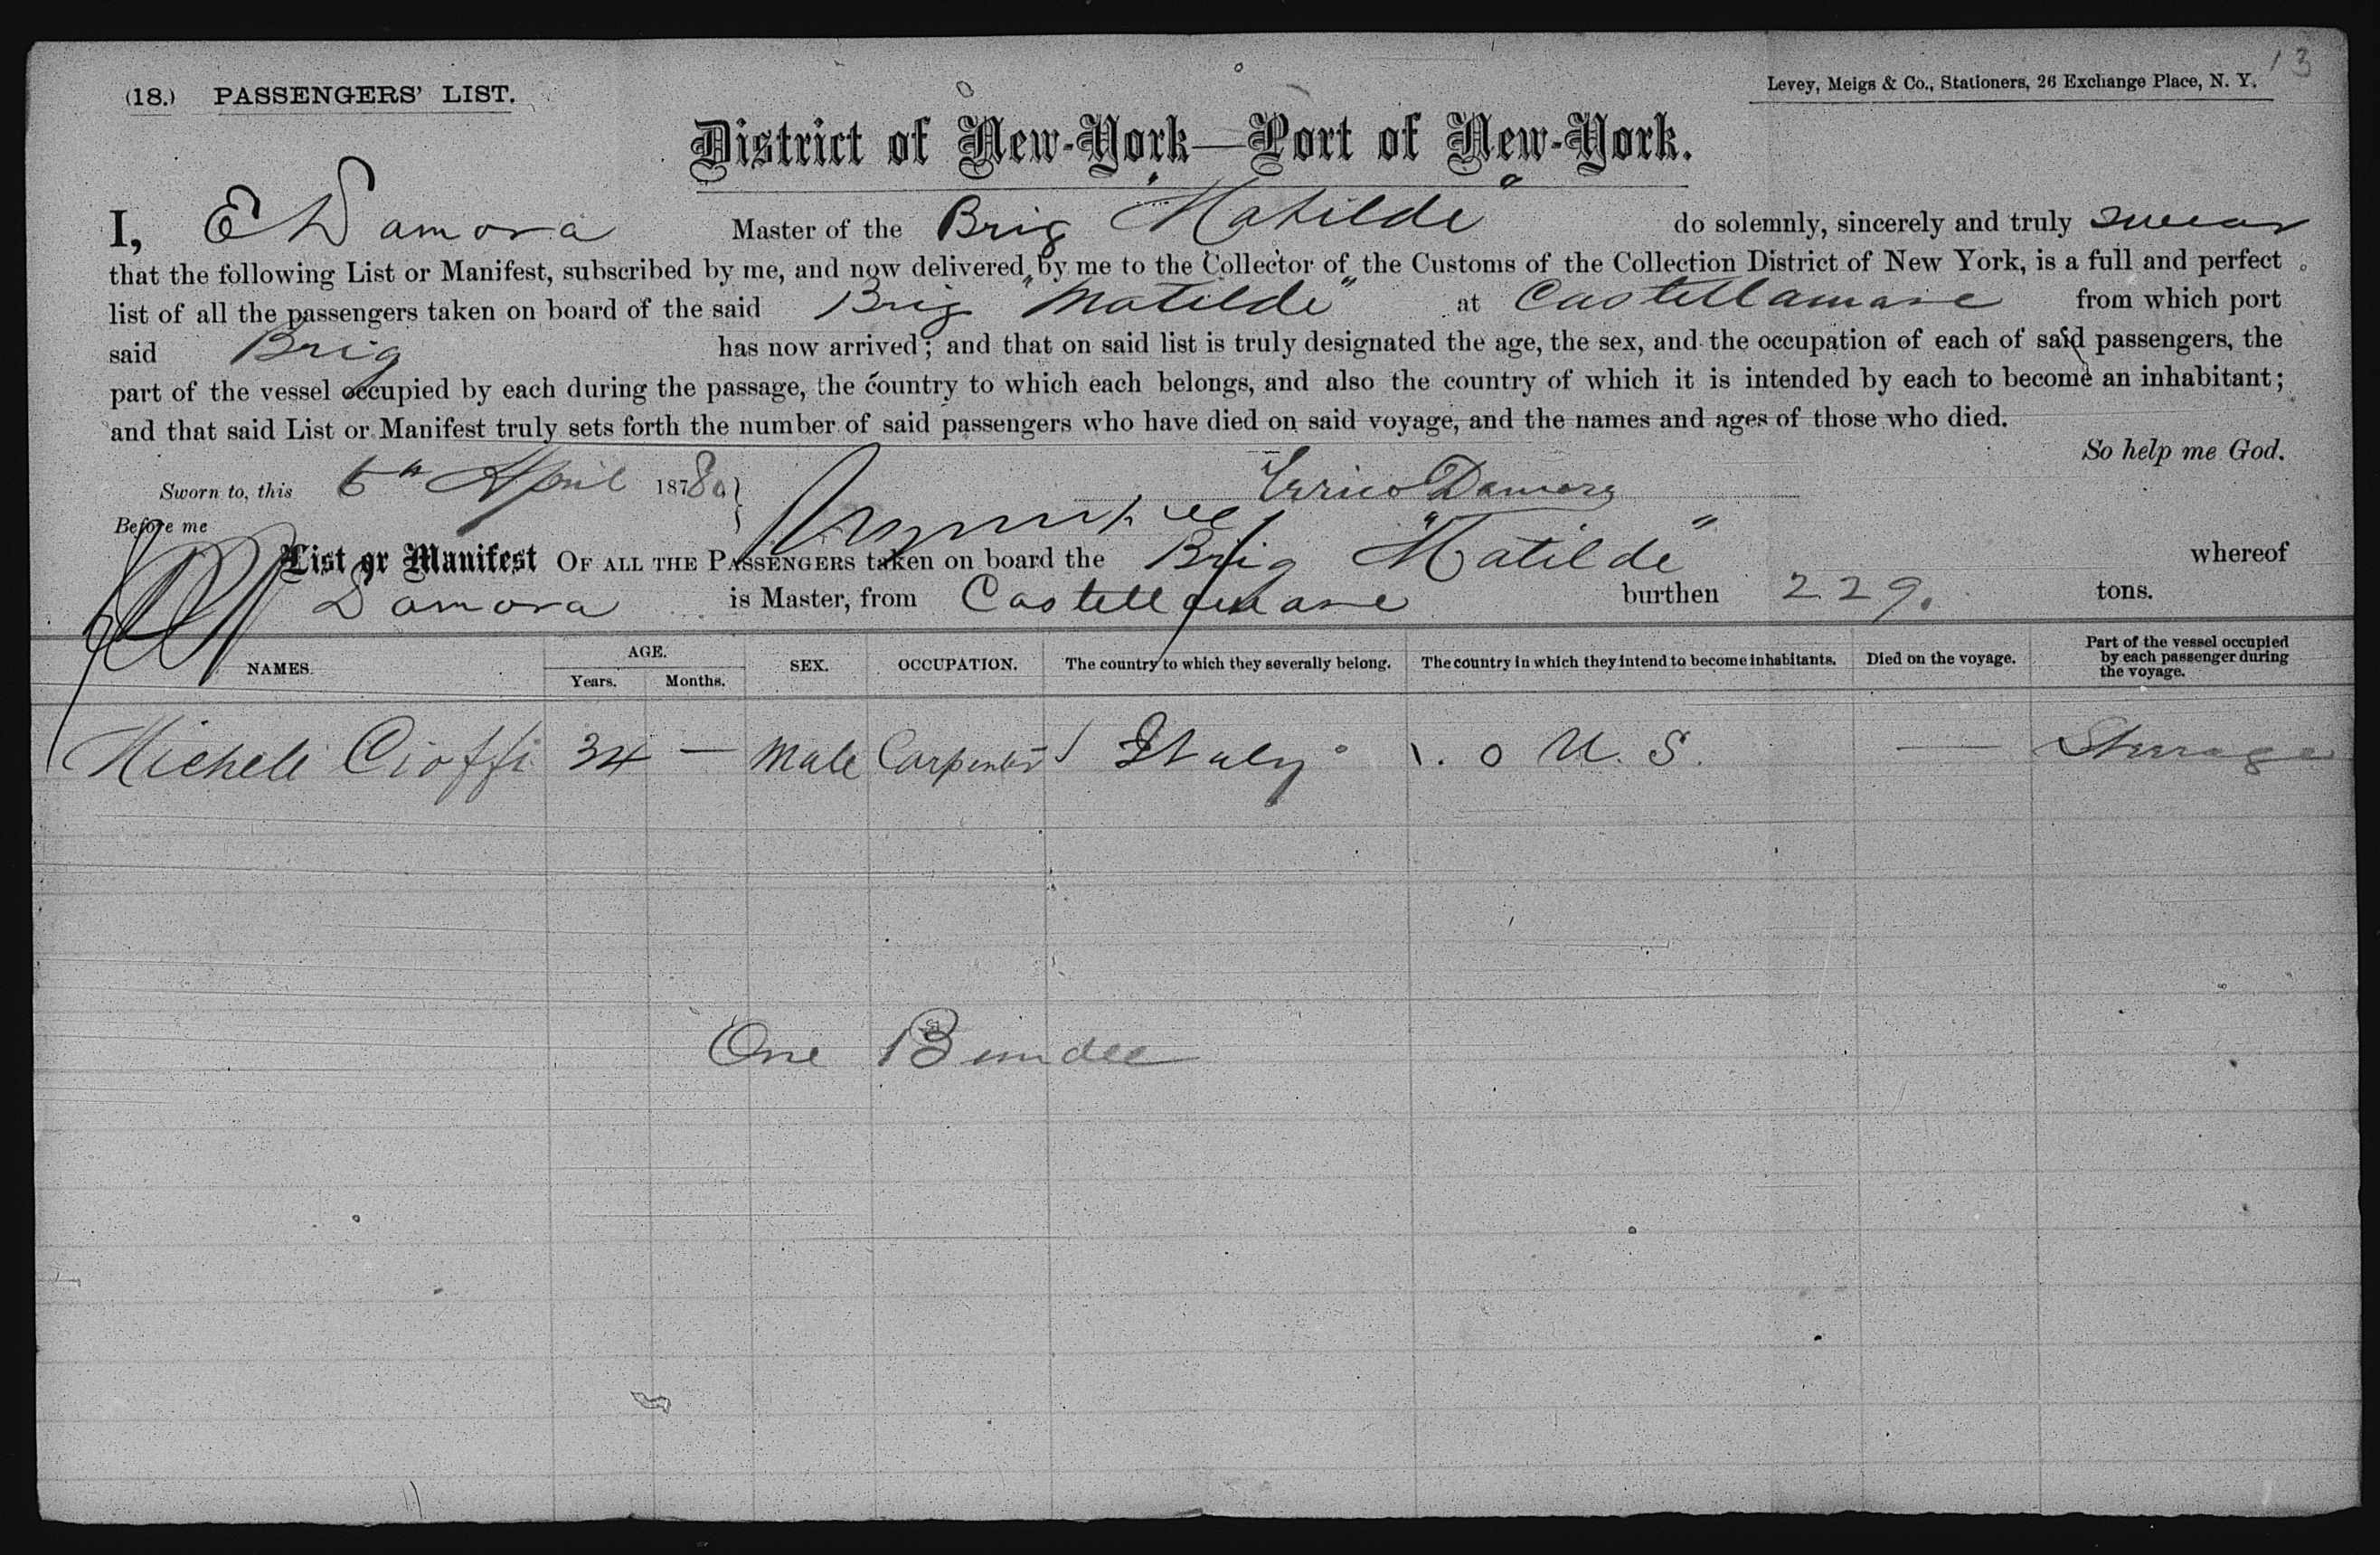 13
(18.) PASSENGERS' LIST.
Levey, Meigs & Co., Stationers, 26 Exchange Place, N. Y.
District of New-York—Port of New-York.
I, E Damora Master of the Brig "Matilde" do solemnly, sincerely and truly swear
that the following List or Manifest, subscribed by me, and now delivered by me to the Collector of the Customs of the Collection District of New York, is a full and perfect
list of all the passengers taken on board of the said Brig "Matilde" at Castellamare from which port
said Brig has now arrived; and that on said list is truly designated the age, the sex, and the occupation of each of said passengers, the
part of the vessel occupied by each during the passage, the country to which each belongs, and also the country of which it is intended by each to become an inhabitant;
and that said List or Manifest truly sets forth the number of said passengers who have died on said voyage, and the names and ages of those who died.
So help me God.
Sworn to, this 6th April 18780 } Errico Damora
Before me
List or Manifest OF ALL THE PASSENGERS taken on board the Brig "Matilde" whereof
Damora is Master, from Castellamare burthen 229. tons.
NAMES. AGE. Years. Months. SEX. OCCUPATION. The country to which they severally belong. The country in which they intend to become inhabitants. Died on the voyage. Part of the vessel occupied by each passenger during the voyage.
Michele Cioffi 34 — Male Carpenter Italy U. S. — Steerage
One Bundle